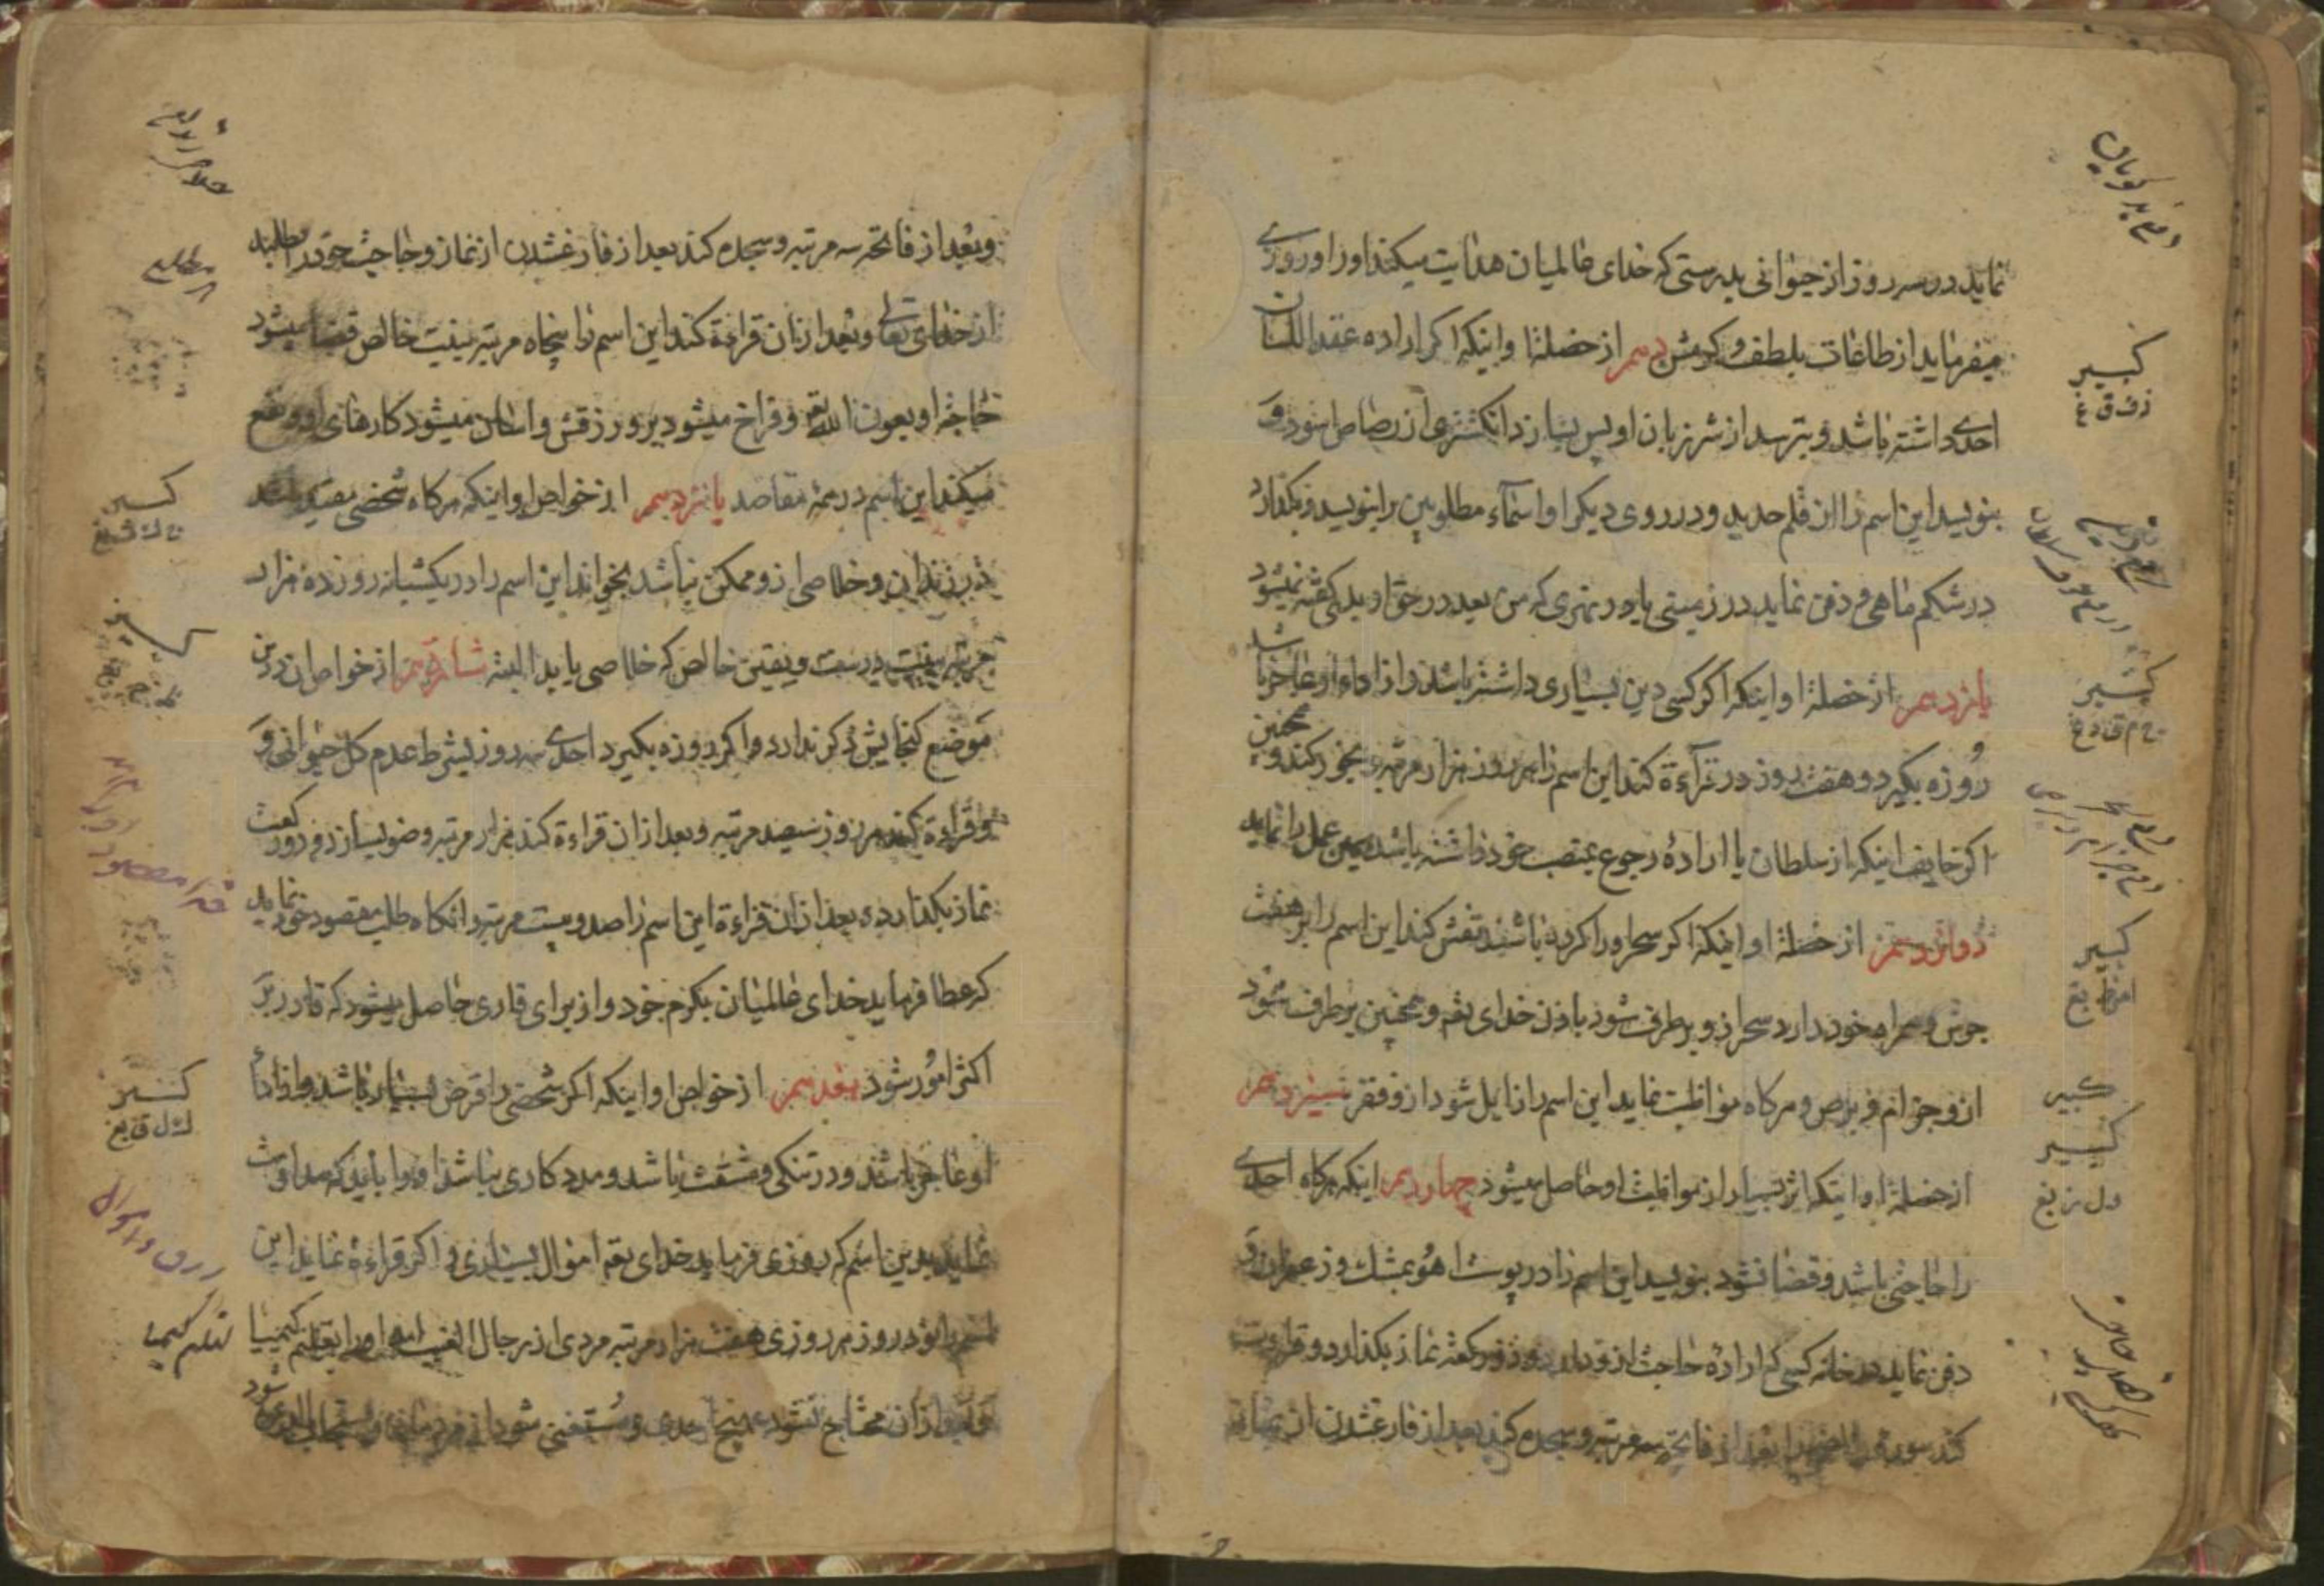 نماید در سه روز از حیوانی بدرستی که خدای عالمیان هدایت میکند او را و روزی
میفرماید از طاعات بلطف و کرمش دهم از خصلة او اینکه اکر اراده عقد اللسان
احدی داشته باشد و بترسد از شر زبان او پس بسازد انکشتری از رصاص اسود و
بنویسد این اسم را از قلم حدید و در روی دیکر او اسمآء مطلوبین را بنویسد و بکذارد
در شکم ماهی و دفن نماید در زمینی یا در نهری که من بعد در حق او بدی کفته نمیشود
یازدهم از خصلة او اینکه اکر کسی دین بسیاری داشته باشد و از اداء او عاجز باشد
روزه بکیرد و هفت روز در قرآءة کند این اسم را هر روز هزار مرتبه و بخور کند و همچنین
اکر خایف اینکه از سلطان یا ارادهٔ رجوع بمنصب خود داشته باشد همین عمل را نماید
دوازدهم از خصلة او اینکه اکر سحر او را کرده باشند نقش کند این اسم را بر هفت
جوش و همراه خود دارد سحر از و برطرف شود باذن خدای تعه و همچنین برطرف شود
از و جزام و برص و هرکاه مواظبت نماید این اسم را زایل شود از و فقر سیزدهم
از خصلة او اینکه اثر بسیار از مواظبت او حاصل میشود چهاردهم اینکه هرکاه احدی
را حاجتی باشد و قضا نشود بنویسد این اسم را در پوست اهو بمشک و زعفران و
دفن نماید در خانه کسی که ارادهٔ حاجت از و دارد و دو رکعة نماز بکذارد و قراءت
کند سوره بعد از فاتحه سه مرتبه و سجده کند بعد از فارغ شدن از نماز
کبیر
کبیر
کبیر
کبیر
کبیر
وبعد از فاتحه سه مرتبه و سجده کند بعد از فارغ شدن از نماز و حاجت خود را بطلبد
از خدای تعالی و بعد از ان قراءة کند این اسم را پنجاه مرتبه بنیت خالص قضا میشود
حاجة او بعون الله تعه و فراخ میشود بر و رزقش و اسان میشود کارهای او و نفع
میکند این اسم در همهٔ مقاصد پانزدهم از خواص او اینکه هرکاه شخصی مقید باشد
در زندان و خلاصی از و ممکن نباشد بخواند این اسم را در یکشبانه روز ده هزار
مرتبه بنیت درست و یقین خالص که خلاصی یابد البته شانزدهم از خواص ان در ین
موضع کنجایش ذکر ندارد و اکر روزه بکیرد احدی سه روز بشرط عدم کل حیوانی و
و قراءة کند هر روز سیصد مرتبه و بعد از ان قراءة کند هزار مرتبه و وضو بسازد و دو رکعت
نماز بکذارد و بعد از ان قراءة این اسم را صد و بیست مرتبه و انکاه طلب مقصود خود نماید
که عطا فرماید خدای عالمیان بکرم خود و از برای قاری حاصل میشود که قادر بر
اکثر امور شود هفدهم از خواص او اینکه اکر شخصی را قرض بسیار باشد و از اداء
او عاجز باشد و در تنکی و مشقت باشد و مددکاری نباشد او را باید که مداومت
نماید بدین اسم که روزی فرماید خدای تعه اموال بسیاری و اکر قراءة نماید این
اسم را نود روز هر روزی هفت هزار مرتبه مردی از رجال الغیب او را تعلیم کیمیا
و بعد از ان محتاج نشود هیچ احدی و مستغنی شود از مردمان و مستجاب الدعوة شود
کبیر
کبیر
تعلیم کیمیا